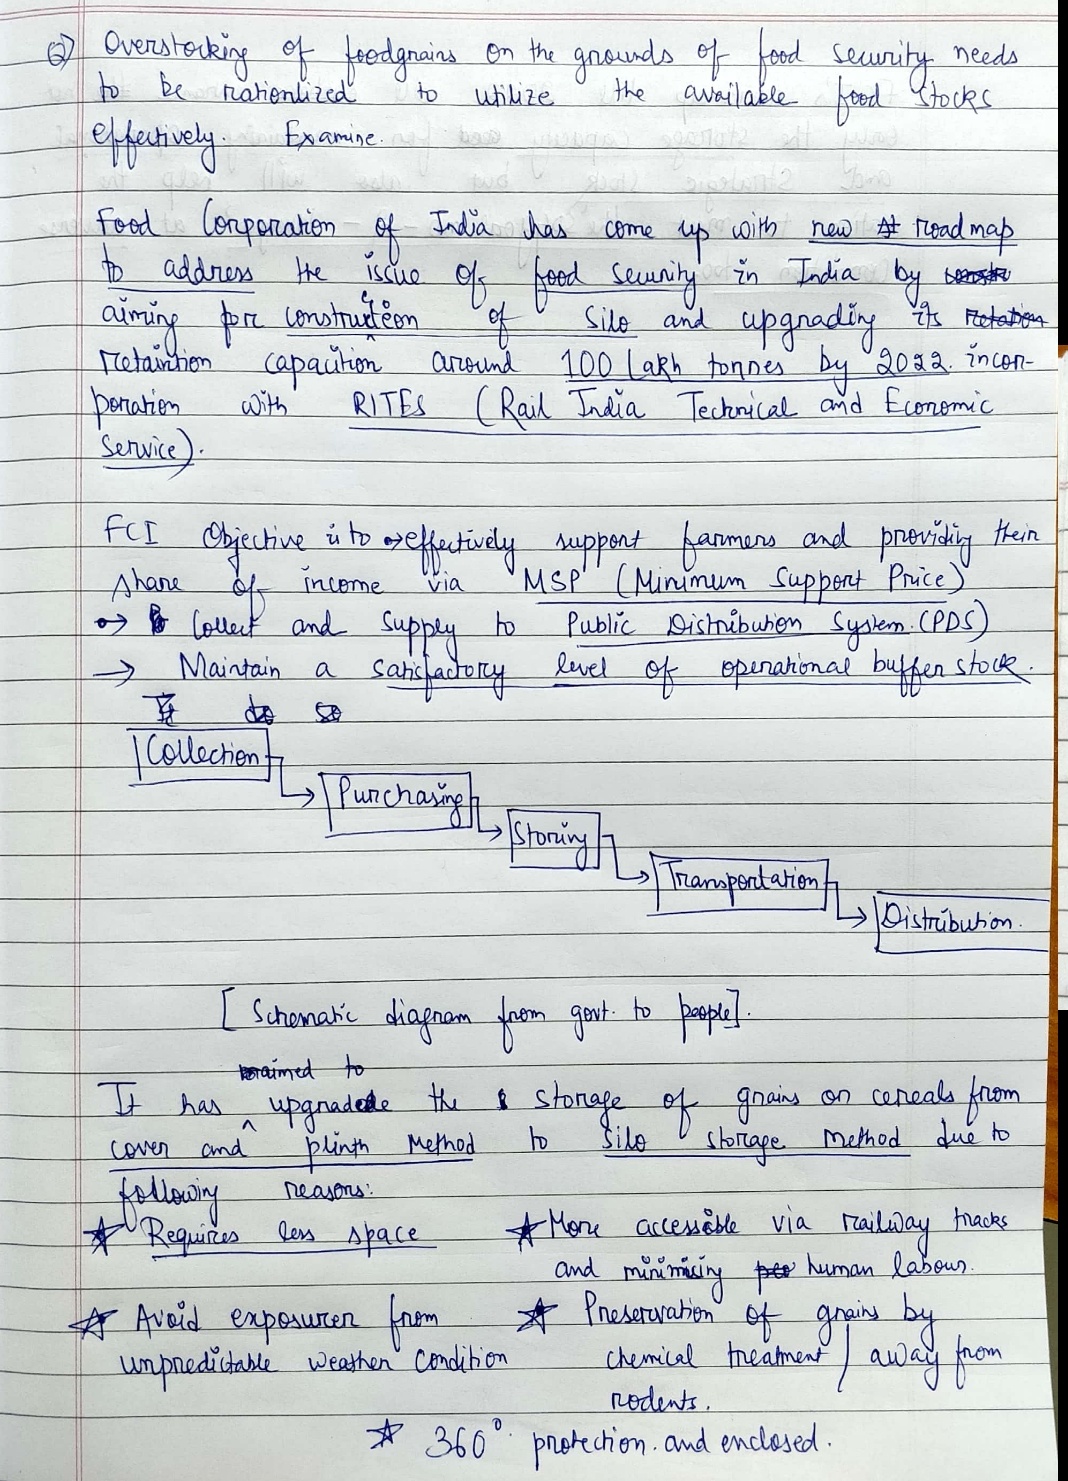 Q) Overstocking of foodgrains on the grounds of food security needs
to be rationlized to utilize the available food stocks
effectively. Examine.
Food Corporation of India has come up with new roadmap
to address the issue of food security in India by
aiming for construction of Silo and upgrading its
retaintion capacition around 100 Lakh tonnes by 2022. incor-
poration with RITES (Rail India Technical and Economic
Service).
FCI Objective is to → effectively support farmers and providing their
share of income via MSP (Minimum Support Price)
→ Collect and supply to Public Distribution System. (PDS)
→ Maintain a satisfactory level of operational buffer stock.
Collection
Purchasing
Storing
Transportation
Distribution.
[Schematic diagram from govt. to people].
aimed to
It has upgrade the storage of grains or cereals from
cover and plinth Method to silo storage Method due to
following reasons:
☆ Requires less space
☆ More accessible via railway tracks
and minimising human labour.
☆ Avoid exposurer from
unpredictable weather condition
☆ Preservation of grains by
chemical treatment / away from
rodents.
☆ 360° protection. and enclosed.